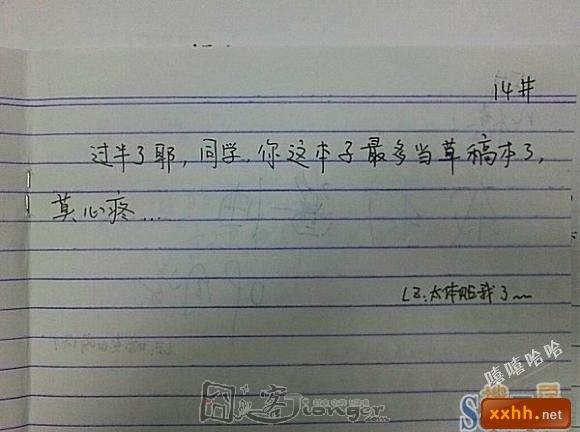 14#
过半了耶,同学,你这本子最多当草稿本了,
莫心疼...
LZ:太体贴我了~~
嘻嘻哈哈
囧客
Jionger.com
xxhh.net